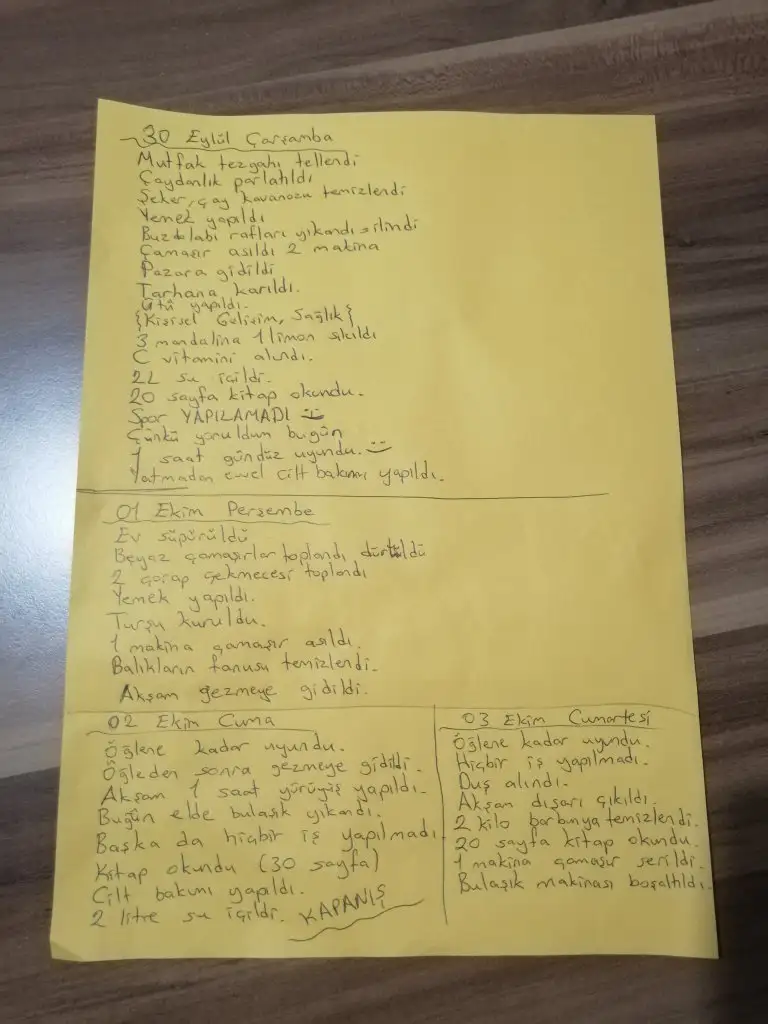 30 Eylül Çarşamba
Mutfak tezgahı tellendi
Çaydanlık parlatıldı
Şeker, çay kavanozu temizlendi
Yemek yapıldı
Buzdolabı rafları yıkandı silindi
Çamaşır asıldı 2 makina
Pazara gidildi
Tarhana karıldı.
Ütü yapıldı.
{Kişisel Gelişim, Sağlık}
3 mandalina 1 limon sıkıldı
C vitamini alındı.
2L su içildi.
20 sayfa kitap okundu.
Spor YAPILAMADI
Çünkü yoruldum bugün
1 saat gündüz uyundu.
Yatmadan evvel cilt bakımı yapıldı.
01 Ekim Perşembe
Ev süpürüldü
Beyaz çamaşırlar toplandı dürüldü
2 çorap çekmecesi toplandı
Yemek yapıldı.
Turşu kuruldu.
1 makina çamaşır asıldı.
Balıkların fanusu temizlendi.
Akşam gezmeye gidildi.
02 Ekim Cuma
Öğlene kadar uyundu.
Öğleden sonra gezmeye gidildi.
Akşam 1 saat yürüyüş yapıldı.
Bugün elde bulaşık yıkandı.
Başka da hiçbir iş yapılmadı.
Kitap okundu (30 sayfa)
Cilt bakımı yapıldı.
2 litre su içildi. KAPANIŞ
03 Ekim Cumartesi
Öğlene kadar uyundu.
Hiçbir iş yapılmadı.
Duş alındı.
Akşam dışarı çıkıldı.
2 kilo barbunya temizlendi.
20 sayfa kitap okundu.
1 makina çamaşır serildi.
Bulaşık makinası boşaltıldı.